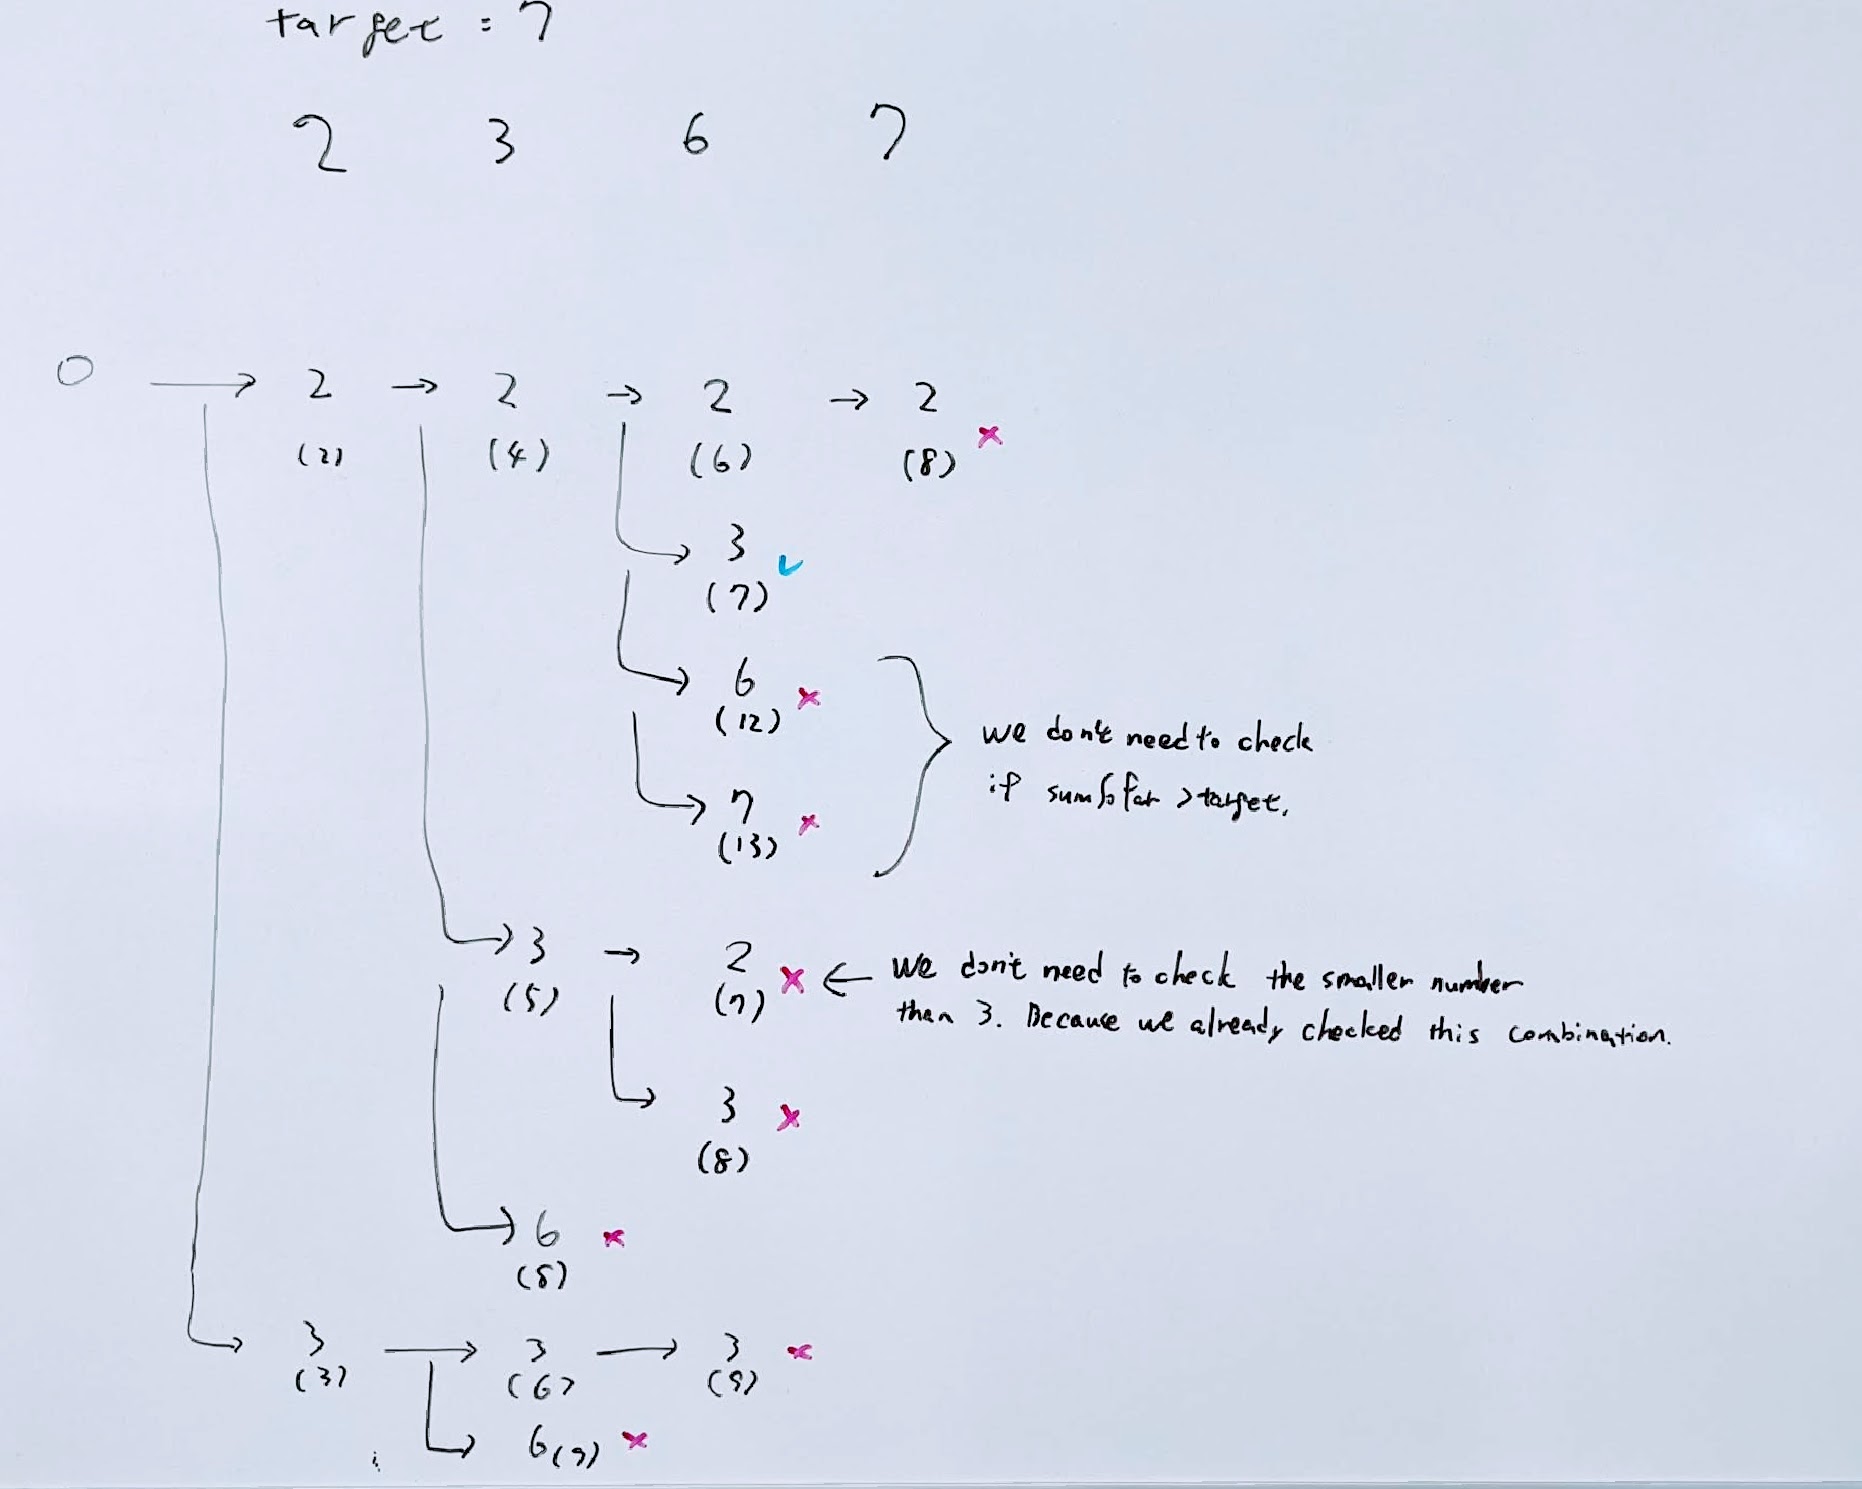 target : 7
2 3 6 7
0 → 2 → 2 → 2 → 2
(2) (4) (6) (8) ×
3 ✓
(7)
6 ×
(12)
we don't need to check
if sum so far > target.
7 ×
(13)
3 → 2 × ← we don't need to check the smaller number
(5) (7) than 3. Because we already checked this combination.
3 ×
(8)
6 ×
(8)
3 → 3 → 3 ×
(3) (6) (9)
6 (9) ×